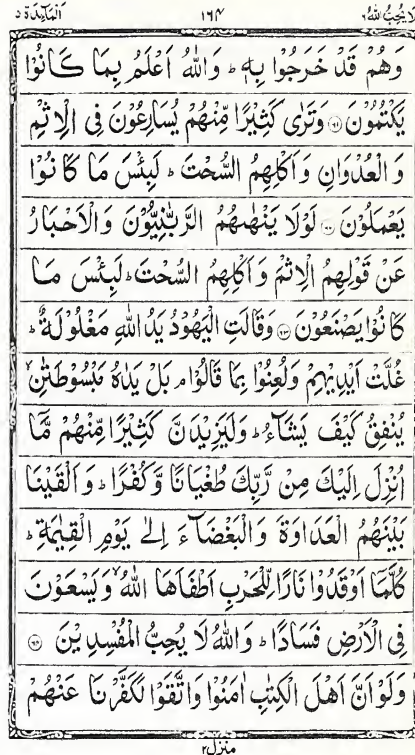 لا يحب الله ٦ ١٦٤ المآئدة ٥
وَهُمْ قَدْ خَرَجُوْا بِهٖ ؕ وَاللّٰهُ اَعْلَمُ بِمَا كَانُوْا
يَكْتُمُوْنَ ﴿۶۱﴾ وَتَرٰى كَثِيْرًا مِّنْهُمْ يُسَارِعُوْنَ فِى الْاِثْمِ
وَ الْعُدْوَانِ وَ اَكْلِهِمُ السُّحْتَ ؕ لَبِئْسَ مَا كَانُوْا
يَعْمَلُوْنَ ﴿۶۲﴾ لَوْلَا يَنْهٰىهُمُ الرَّبّٰنِيُّوْنَ وَالْاَحْبَارُ
عَنْ قَوْلِهِمُ الْاِثْمَ وَ اَكْلِهِمُ السُّحْتَ ؕ لَبِئْسَ مَا
كَانُوْا يَصْنَعُوْنَ ﴿۶۳﴾ وَقَالَتِ الْيَهُوْدُ يَدُ اللّٰهِ مَغْلُوْلَةٌ ؕ
غُلَّتْ اَيْدِيْهِمْ وَلُعِنُوْا بِمَا قَالُوْا ۘ بَلْ يَدٰهُ مَبْسُوْطَتٰنِ ۙ
يُنْفِقُ كَيْفَ يَشَآءُ ؕ وَلَيَزِيْدَنَّ كَثِيْرًا مِّنْهُمْ مَّا
اُنْزِلَ اِلَيْكَ مِنْ رَّبِّكَ طُغْيَانًا وَّكُفْرًا ؕ وَاَلْقَيْنَا
بَيْنَهُمُ الْعَدَاوَةَ وَالْبَغْضَآءَ اِلٰى يَوْمِ الْقِيٰمَةِ ؕ
كُلَّمَا اَوْقَدُوْا نَارًا لِّلْحَرْبِ اَطْفَاَهَا اللّٰهُ ۙ وَيَسْعَوْنَ
فِى الْاَرْضِ فَسَادًا ؕ وَاللّٰهُ لَا يُحِبُّ الْمُفْسِدِيْنَ ﴿۶۴﴾
وَلَوْ اَنَّ اَهْلَ الْكِتٰبِ اٰمَنُوْا وَاتَّقَوْا لَكَفَّرْنَا عَنْهُمْ
منزل ٢